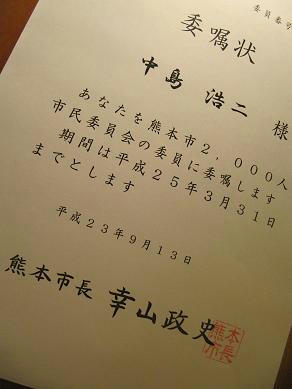 委員番号
委嘱状
中島 浩二 様
あなたを熊本市２，０００人
市民委員会の委員に委嘱します
期間は平成２５年３月３１日
までとします
平成２３年９月１３日
熊本市長 幸山政史
熊本
市長